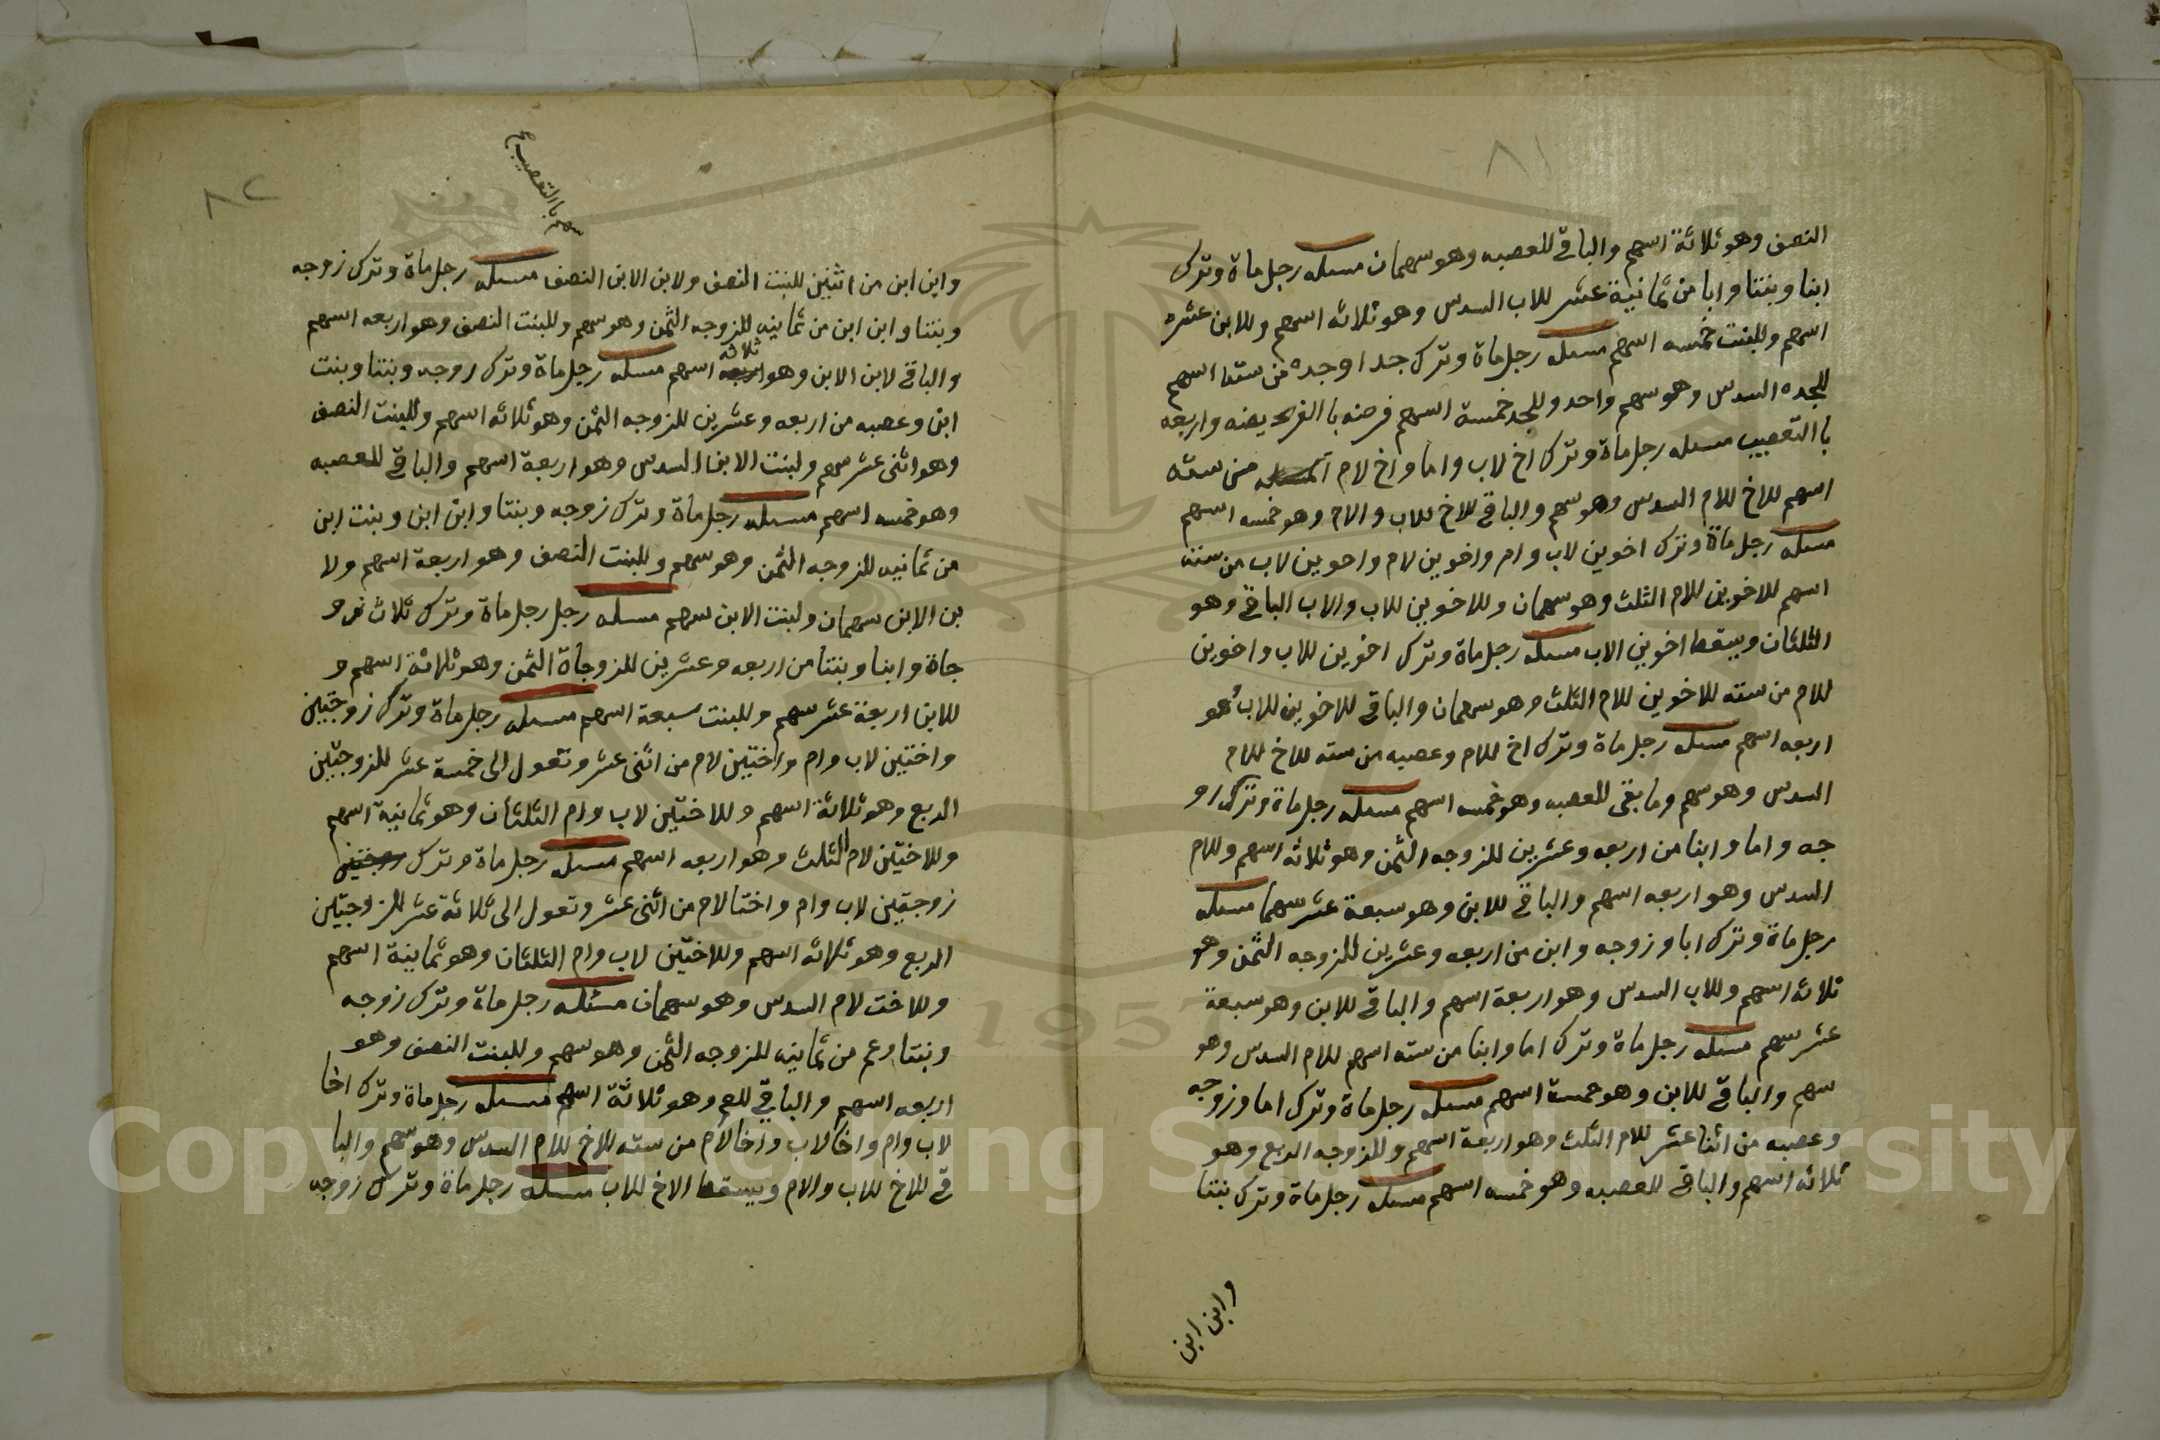 ٨١
النصف وهو ثلاثة اسهم والباقي للعصبه وهو سهمان مسله رجل ماة وترك
ابنا وبنتا وابا من ثمانية عشر للاب السدس وهو ثلاثه اسهم وللابن عشره
اسهم وللبنت خمسه اسهم مسله رجل ماة وترك جدا وجده من سته اسهم
للجده السدس وهو سهم واحد وللجد خمسة اسهم فرضه با الفريضه واربعه
با التعصيب مسله رجل ماة وترك اخ لاب واما واخ لام من سته
اسهم للاخ للام السدس وهو سهم والباقي للاخ للاب والام وهو خمسه اسهم
مسله رجل ماة وترك اخوين لاب وام واخوين لام واخوين لاب من سته
اسهم للاخوين للام الثلث وهو سهمان وللاخوين للاب والاب الباقي وهو
الثلثان ويسقط اخوين الاب مسله رجل ماة وترك اخوين للاب واخوين
للام من سته للاخوين للام الثلث وهو سهمان والباقي للاخوين للاب وهو
اربعه اسهم مسله رجل ماة وترك اخ للام وعصبه من سته للاخ للام
السدس وهو سهم وما بقى للعصبه وهو خمسه اسهم مسله رجل ماة وترك زو
جه واما وابنا من اربعه وعشرين للزوجه الثمن وهو ثلاثه اسهم وللام
السدس وهو اربعه اسهم والباقي للابن وهو سبعة عشر سهما مسله
رجل ماة وترك ابا وزوجه وابن من اربعه وعشرين للزوجه الثمن وهو
ثلاثه اسهم وللاب السدس وهو اربعة اسهم والباقي للابن وهو سبعة
عشر سهم مسله رجل ماة وترك اما وابنا من سته اسهم للام السدس وهو
سهم والباقي للابن وهو خمسة اسهم مسله رجل ماة وترك اما وزوجه
وعصبه من اثنا عشر للام الثلث وهو اربعة اسهم وللزوجه الربع وهو
ثلاثه اسهم والباقي للعصبه وهو خمسه اسهم مسله رجل ماة وترك بنتا
وابن ابن
٨٢
سهم با التعصيب
وابن ابن من اثنين للبنت النصف ولابن الابن النصف مسله رجل ماة وترك زوجه
وبنتا وابن ابن من ثمانيه للزوجه الثمن وهو سهم وللبنت النصف وهو اربعه اسهم
والباقي لابن الابن وهو ثلاثه اسهم مسله رجل ماة وترك زوجه وبنتا وبنت
ابن وعصبه من اربعه وعشرين للزوجه الثمن وهو ثلاثه اسهم وللبنت النصف
وهو اثنى عشر سهم ولبنت الابن السدس وهو اربعة اسهم والباقي للعصبه
وهو خمسه اسهم مسله رجل ماة وترك زوجه وبنتا وابن ابن وبنت ابن
من ثمانيه للزوجه الثمن وهو سهم وللبنت النصف وهو اربعة اسهم ولا
بن الابن سهمان ولبنت الابن سهم مسله رجل رجل ماة وترك ثلاث زو
جاة وابنا وبنتا من اربعه وعشرين للزوجاة الثمن وهو ثلاثة اسهم و
للابن اربعة عشر سهم وللبنت سبعة اسهم مسله رجل ماة وترك زوجتين
واختين لاب وام واختين لام من اثنى عشر وتعول الى خمسة عشر للزوجتين
الربع وهو ثلاثة اسهم وللاختين لاب وام الثلثان وهو ثمانية اسهم
وللاختين لام الثلث وهو اربعه اسهم مسله رجل ماة وترك
زوجتين لاب وام واختا لام من اثنى عشر وتعول الى ثلاثة عشر للزوجتين
الربع وهو ثلاثه اسهم وللاختين لاب وام الثلثان وهو ثمانية اسهم
وللاخت لام السدس وهو سهمان مسئله رجل ماة وترك زوجه
وبنتا وعم من ثمانيه للزوجه الثمن وهو سهم وللبنت النصف وهو
اربعه اسهم والباقي للعم وهو ثلاثة اسهم مسله رجل ماة وترك اخا
لاب وام واخا لاب واخا لام من سته للاخ للام السدس وهو سهم والبا
قي للاخ للاب والام ويسقط الاخ للاب مسله رجل ماة وترك زوجه
Copyright © King Saud University
1957